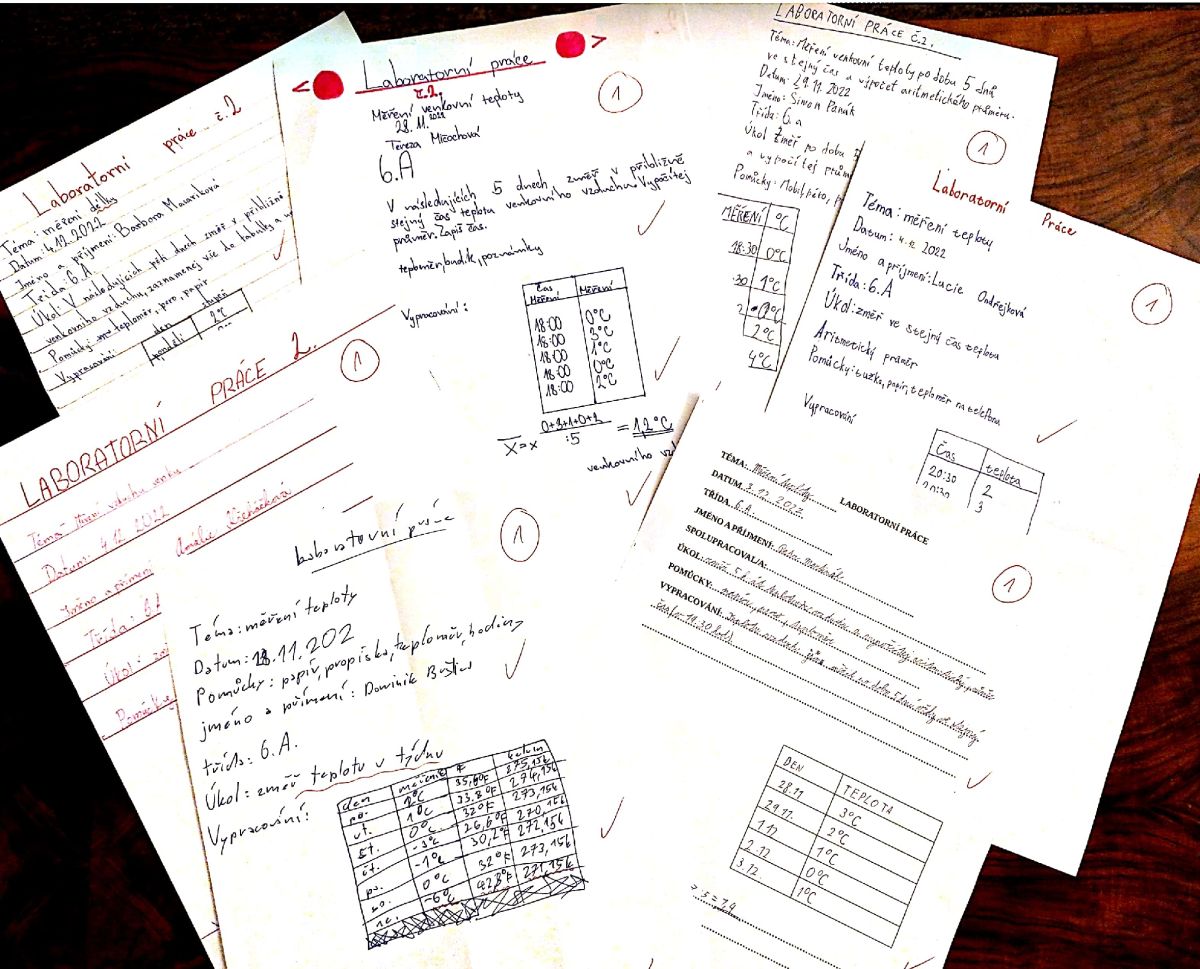 Laboratorní práce č.2
Tema: měření délky
Datum: 4.12.2022
Jméno a příjmení: Barbora
Třída: 6.A
Úkol: V následujících pěti dnech změř v přibližně
venkovního vzduchu, zaznamenej vše do tabulky a
Pomůcky: teploměr, pero, papír
Vypracování:
den stupeň
pondělí 2°C
< Laboratorní práce >
č.2.
Měření venkovní teploty
28.11.2022
Tereza Mičochová
6.A
1
V následujících 5 dnech změř v přibližně
stejný čas teplotu venkovního vzduchu. Vypočítej
průměr. Zapiš čas.
teploměr, budík, poznámky
Vypracování:
čas Měření Měření
18:00 0°C
18:00 3°C
18:00 1°C
18:00 0°C
18:00 2°C
X = x 0+3+1+0+2 :5 = 1,2°C
venkovního
LABORATORNÍ PRÁCE Č.2.
Téma: Měření venkovní teploty po dobu 5 dnů
ve stejný čas a výpočet aritmetického průměru.
Datum: 29.11.2022
Jméno: Šimon Panák
Třída: 6.a
Úkol Změř po dobu
a vypočítej
Pomůcky: Mobil, péro,
1
MĚŘENÍ °C
18:30 0°C
30 1°C
2°C
4°C
Laboratorní Práce
Téma: měření teploty
Datum: 4.12 2022
Jméno a příjmení: Lucie Ondřejková
Třída: 6.A
Úkol: změř ve stejný čas teplotu
Aritmetický průměr
Pomůcky: tužka, papír, teploměr na telefonu
Vypracování
1
Čas teplota
20:30 2
20:30 3
LABORATORNÍ PRÁCE 2.
1
Téma: vzduchu venku
Datum: 4.12 2022
Jméno a příjmení Amálie
Třída: 6.A
Úkol:
Pomůcky
Laboratorní práce
1
Téma: měření teploty
Datum: 28.11.202
Pomůcky: papír, propiska, teploměr, hodiny
jméno a přímení: Dominik
třída: 6.A.
Úkol: změř teplotu v týdnu
Vypracování:
den měření °F kelvin
po. 2°C 35,6°F 275,15k
út. 1°C 33,8°F 274,15k
st. 0°C 32°F 273,15k
čt. -3°C 26,6°F 270,15k
pá. -1°C 30,2°F 272,15k
so. 0°C 32°F 273,15k
ne. -6°C
LABORATORNÍ PRÁCE
TÉMA: Měření teploty
DATUM: 3.12.2022
TŘÍDA: 6.A
JMÉNO A PŘÍJMENÍ:
SPOLUPRACOVAL/A:
ÚKOL:
POMŮCKY:
VYPRACOVÁNÍ:
1
DEN TEPLOTA
28.11 3°C
29.11. 2°C
1.12 1°C
2.12 0°C
3.12. 1°C
:5=1,4